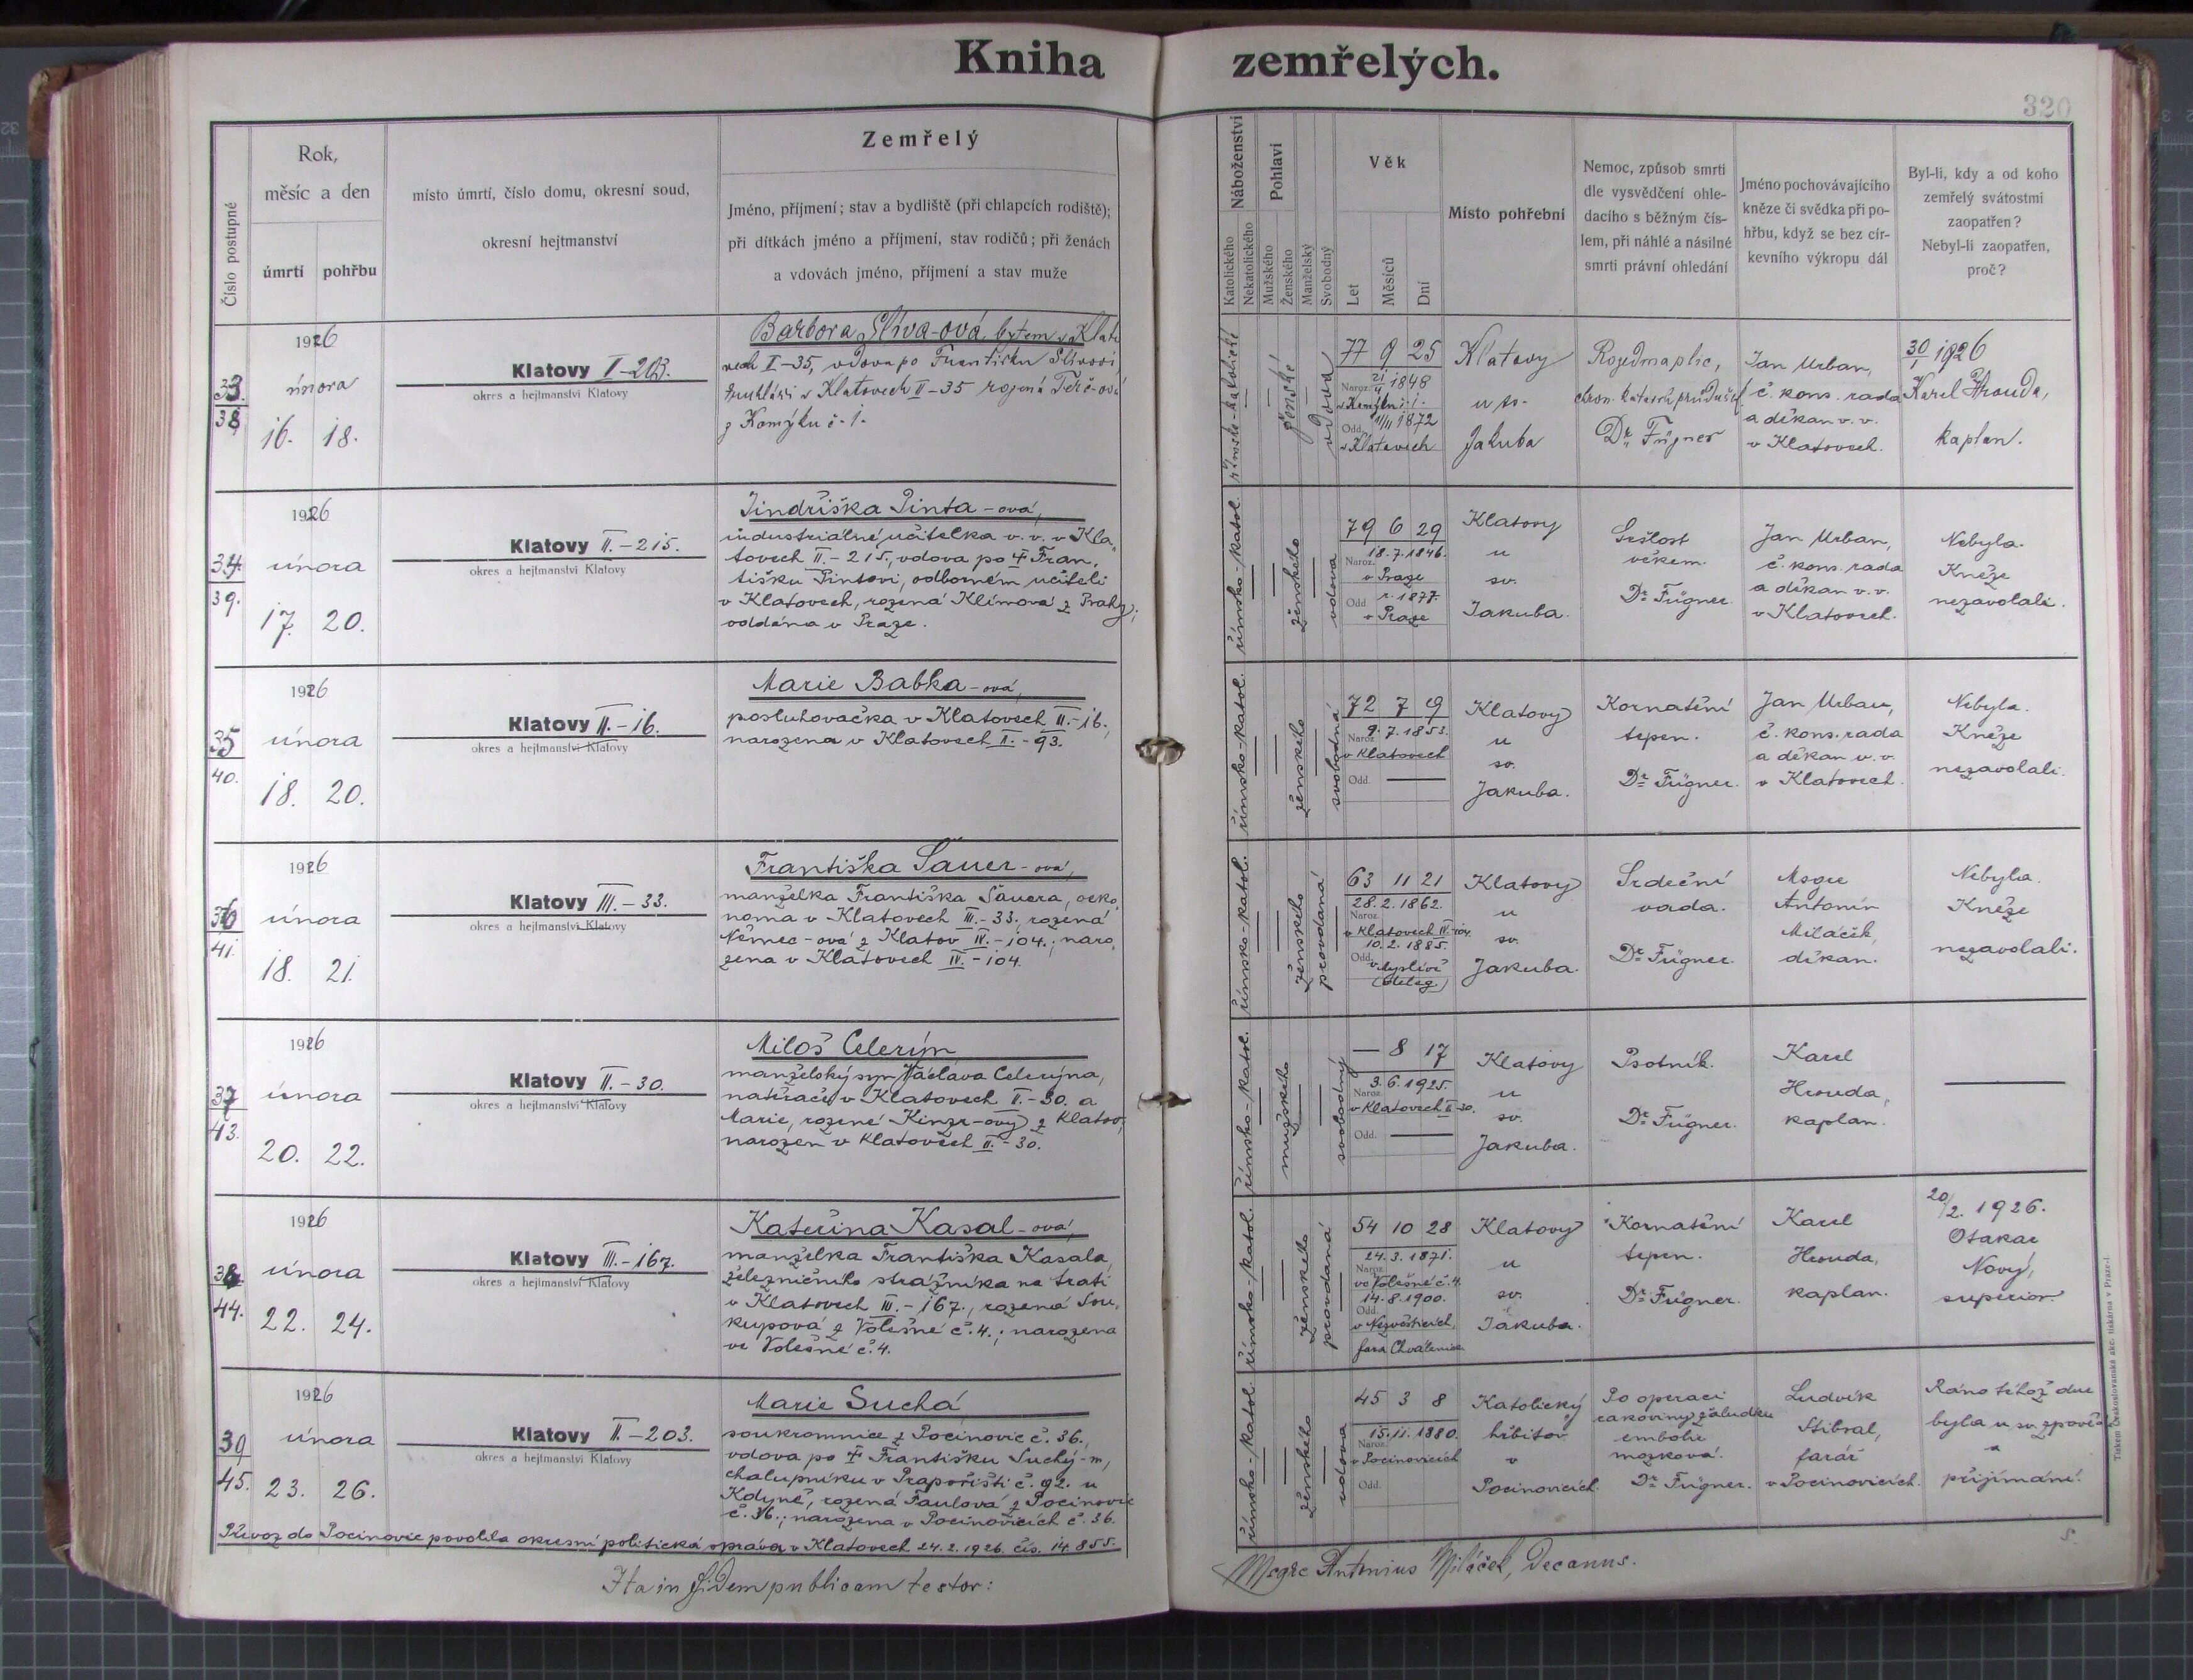 Kniha zemřelých.
320
Číslo postupné
Rok,
měsíc a den
úmrtí pohřbu
místo úmrtí, číslo domu, okresní soud,
okresní hejtmanství
Zemřelý
Jméno, příjmení; stav a bydliště (při chlapcích rodiště);
při dítkách jméno a příjmení, stav rodičů; při ženách
a vdovách jméno, příjmení a stav muže
Náboženství
Katolického
Nekatolického
Pohlaví
Mužského
Ženského
Manželský
Svobodný
Věk
Let
Měsíců
Dní
Místo pohřební
Nemoc, způsob smrti
dle vysvědčení ohle-
dacího s běžným čís-
lem, při náhlé a násilné
smrti právní ohledání
Jméno pochovávajícího
kněze či svědka při po-
hřbu, když se bez cír-
kevního výkropu dál
Byl-li, kdy a od koho
zemřelý svátostmi
zaopatřen?
Nebyl-li zaopatřen,
proč?
33.
38
1926
února
16. 18.
Klatovy I-203.
okres a hejtmanství Klatovy
Barbora Slíva-ová, bytem v Klato
vech II-35, vdova po Františku Slívovi
truhláři v Klatovech II-35 rozená
z Komýku č. 1.
římsko-katolické
ženské
vdova
77 9 25
Naroz. 21/4 1848
Odd. 11/11 1872
v Klatovech
Klatovy
u sv.
Jakuba
Rozedma plic,
chron. katarrh průdušek
Dr. Fügner
Jan Urban,
č. kons. rada
a děkan v. v.
v Klatovech.
30/1 1926
Karel Hrouda,
kaplan.
34.
39.
1926
února
17. 20.
Klatovy II.-215.
okres a hejtmanství Klatovy
Jindřiška Pinta-ová,
industriální učitelka v. v. v Kla-
tovech II.-215., vdova po † Fran-
tišku Pintovi, odborném učiteli
v Klatovech, rozená Klímová z Prahy;
oddána v Praze.
římsko-katol.
ženského
vdova
79 6 29
Naroz. 18.7.1846.
v Praze
Odd. r. 1877.
v Praze
Klatovy
u
sv.
Jakuba.
Sešlost
věkem.
Dr. Fügner.
Jan Urban,
č. kons. rada
a děkan v. v.
v Klatovech.
Nebyla.
Kněze
nezavolali.
35
40.
1926
února
18. 20.
Klatovy II.-16.
okres a hejtmanství Klatovy
Marie Babka-ová,
posluhovačka v Klatovech II.-16.,
narozena v Klatovech II.-93.
římsko-katol.
ženského
svobodná
72 7 9
Naroz. 9.7.1853.
v Klatovech
Odd. —
Klatovy
u
sv.
Jakuba.
Kornatění
tepen.
Dr. Fügner.
Jan Urban,
č. kons. rada
a děkan v. v.
v Klatovech.
Nebyla.
Kněze
nezavolali.
36
41.
1926
února
18. 21.
Klatovy III.-33.
okres a hejtmanství Klatovy
Františka Sauer-ová,
manželka Františka Sauera, oeko-
noma v Klatovech III.-33., rozená
Němec-ová z Klatov IV.-104.; naro-
zena v Klatovech IV.-104.
římsko-katol.
ženského
provdaná
63 11 21
28.2.1862.
Naroz.
v Klatovech IV.-104.
10.2.1885.
Odd.
(deleg.)
Klatovy
u
sv.
Jakuba.
Srdeční
vada.
Dr. Fügner.
Msgre
Antonín
Miláček,
děkan.
Nebyla.
Kněze
nezavolali.
37
43.
1926
února
20. 22.
Klatovy II.-30.
okres a hejtmanství Klatovy
Miloš Celerýn
manželský syn Václava Celerýna,
natěrače v Klatovech II.-30. a
Marie, rozené Kinzr-ový z Klatov,
narozen v Klatovech II.-30.
římsko-katol.
mužského
svobodný
— 8 17
3.6.1925.
Naroz.
v Klatovech II-30.
Odd. —
Klatovy
u
sv.
Jakuba.
Psotník.
Dr. Fügner.
Karel
Hrouda,
kaplan.
—
38
44.
1926
února
22. 24.
Klatovy III.-167.
okres a hejtmanství Klatovy
Kateřina Kasal-ová,
manželka Františka Kasala,
železničního strážníka na trati
v Klatovech III.-167., rozená Sou-
kupová z Volešné č.4.; narozena
ve Volešné č.4.
římsko-katol.
ženského
provdaná
54 10 28
24.3.1871.
Naroz.
ve Volešné č.4.
14.8.1900.
Odd.
v Nezvěsticích,
fara Chválenice
Klatovy
u
sv.
Jakuba.
Kornatění
tepen.
Dr. Fügner.
Karel
Hrouda,
kaplan.
20/2. 1926.
Otakar
Nový,
superior.
39
45.
1926
února
23. 26.
Klatovy II.-203.
okres a hejtmanství Klatovy
Marie Suchá
soukromnice z Pocinovic č. 36.,
vdova po † Františku Suchý-m,
chalupníku v Prapořišti č. 92. u
Kdyně, rozená Paulová z Pocinovic
č. 36.; narozena v Pocinovicích č. 36.
Převoz do Pocinovic povolila okresní politická správa v Klatovech 24.2.1926. čís. 14.855.
římsko-katol.
ženského
vdova
45 3 8
15.11.1880.
Naroz.
v Pocinovicích
Odd.
Katolický
hřbitov
v
Pocinovicích.
Po operaci
rakoviny žaludku
embolie
mozková.
Dr. Fügner.
Ludvík
Stibral,
farář
v Pocinovicích.
Ráno téhož dne
byla u sv. zpovědi
a
přijímání.
Ita in fidem publicam testor:
Msgre Antonius Miláček, Decanus.
Tiskem Českoslovanská akc. tiskárna v Praze-I